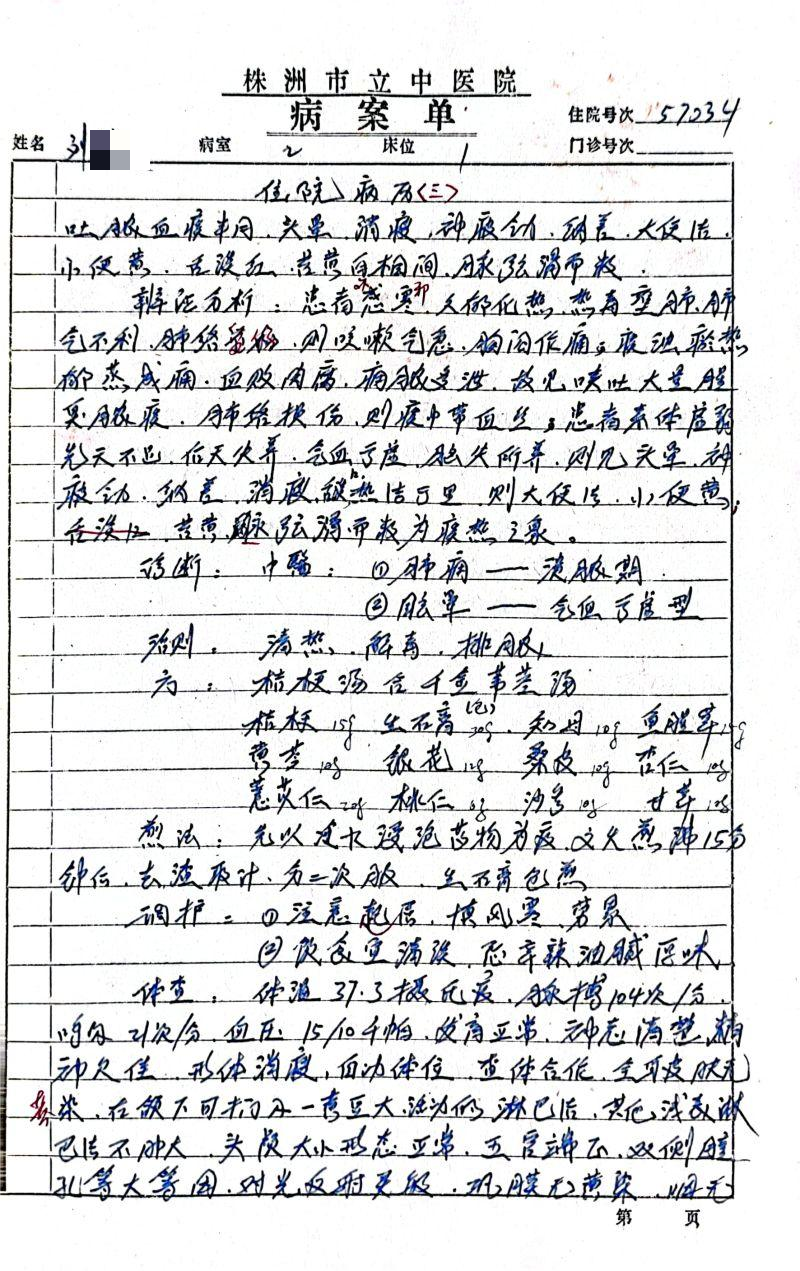 株洲市立中医院
病案单
住院号次 57034
姓名 刘 病室 2 床位 1 门诊号次
住院病历(三)
吐脓血痰半月,头晕、消瘦、神疲乏力、纳差、大便结、
小便黄、舌淡红、苔黄白相间、脉弦滑而数.
辨证分析:患者感寒邪久郁化热,热毒壅肺,肺
气不利,肺络 则咳嗽气急、胸闷作痛;痰浊瘀热
郁蒸成痈,血败肉腐,痈脓 泄,故见咳吐大量腥
臭脓痰,肺络损伤,则痰中带血丝;患者素体虚弱
先天不足,后天失养,气血亏虚,脑失所养,则见头晕、神
疲乏力、纳差、消瘦,热结于里,则大便结,小便黄;
舌淡红,苔黄,脉弦滑而数为痰热之象。
诊断:中醫:①肺痈——溃脓期
②眩晕——气血亏虚型
治则:清热、解毒、排脓
方:桔梗汤合千金苇茎汤
桔梗15g 生石膏(包)30g 知母10g 鱼腥草15g
黄芩10g 银花12g 桑皮10g 杏仁10g
薏苡仁20g 桃仁6g 沙参10g 甘草10g
煎法:先以冷水浸泡药物为度,文火煎沸15分
钟后,去渣取汁,分二次服,生石膏包煎
调护:①注意起居,慎风寒、劳累
②饮食宜清淡,忌辛辣油腻厚味
体查:体温37.3摄氏度,脉搏104次/分,
呼吸21次/分,血压15/10千帕,发育正常,神志清楚,精
神欠佳,形体消瘦,自动体位,查体合作,全身皮肤无
黄染,在颌下可扪及一黄豆大,活动的淋巴结,其他浅表淋
巴结不肿大,头颅大小形态正常,五官端正,双侧瞳
孔等大等圆,对光反射灵敏,巩膜无黄染,咽无
第 页